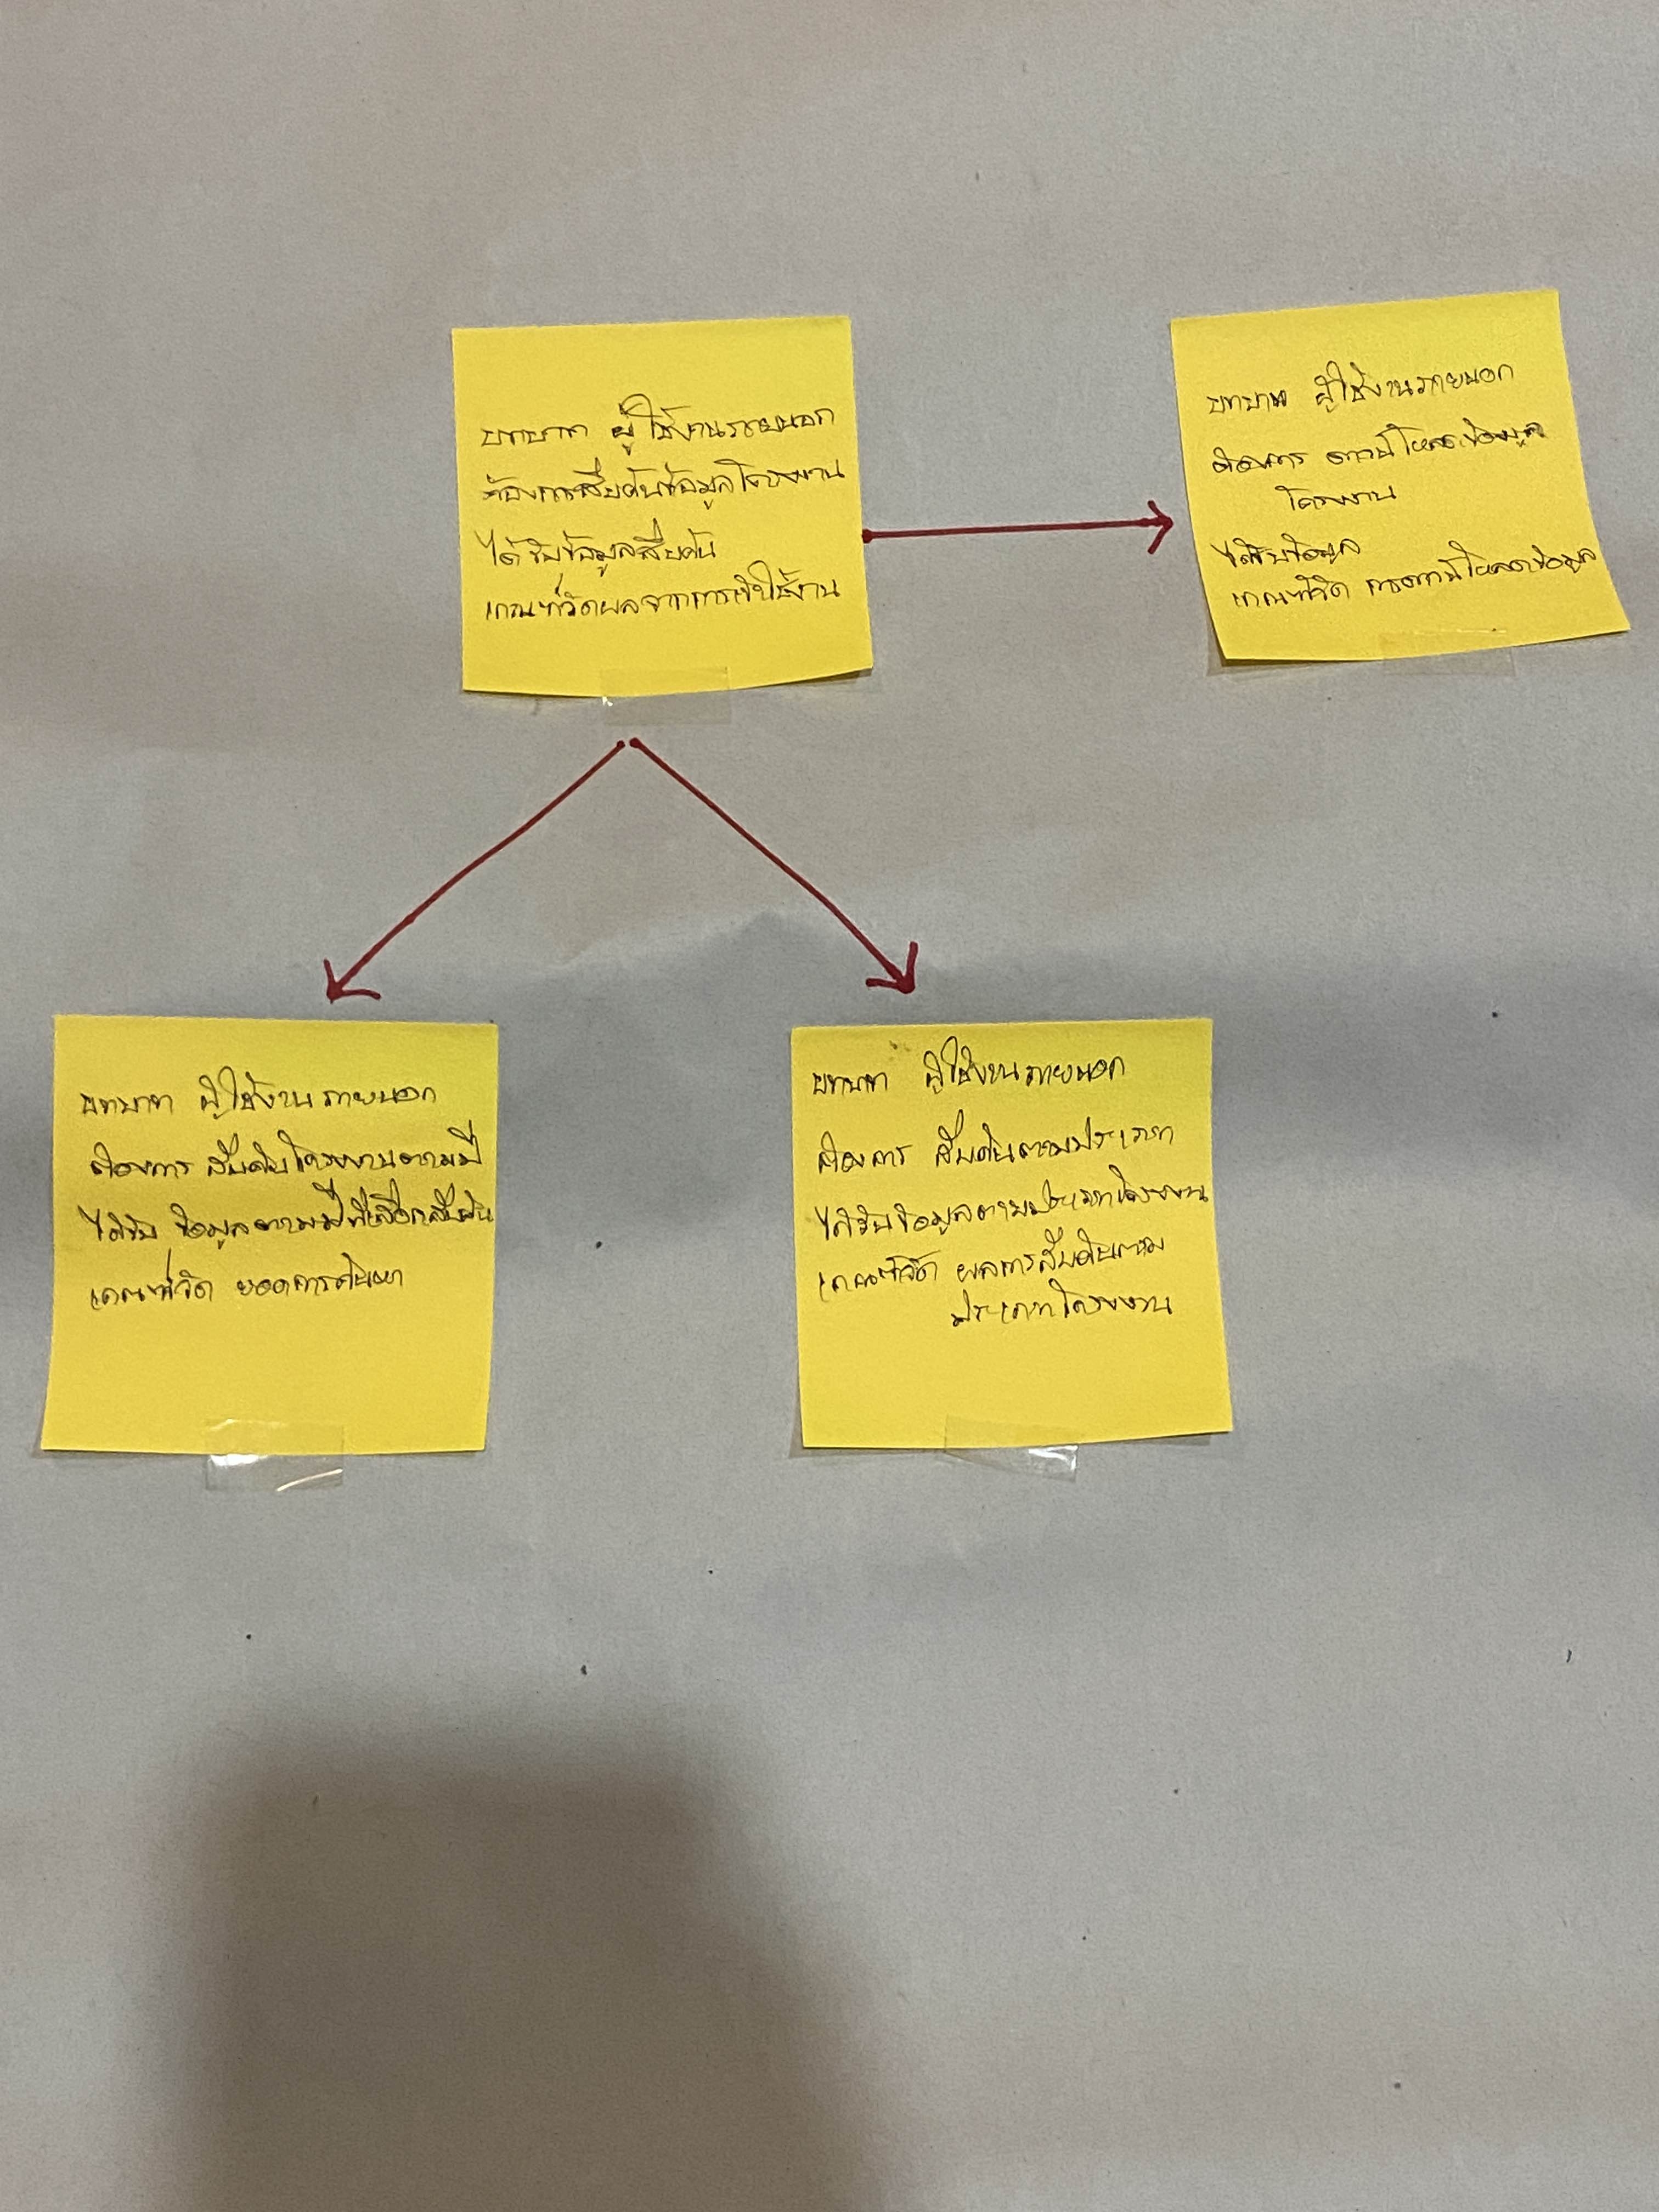 บทบาท ผู้ใช้งานภายนอก
ต้องการสืบค้นข้อมูลโครงงาน
ได้รับข้อมูลสืบค้น
เกณฑ์วัดผลจากการเข้าใช้งาน
บทบาท ผู้ใช้งานภายนอก
ต้องการ ดาวน์โหลดข้อมูล
โครงงาน
ได้รับข้อมูล
เกณฑ์วัด การดาวน์โหลดข้อมูล
บทบาท ผู้ใช้งานภายนอก
ต้องการ สืบค้นโครงงานตามปี
ได้รับ ข้อมูลตามปีที่เลือกสืบค้น
เกณฑ์วัด ยอดการค้นหา
บทบาท ผู้ใช้งานภายนอก
ต้องการ สืบค้นตามประเภท
ได้รับข้อมูลตามประเภทโครงงาน
เกณฑ์วัด ผลการสืบค้นตาม
ประเภทโครงงาน